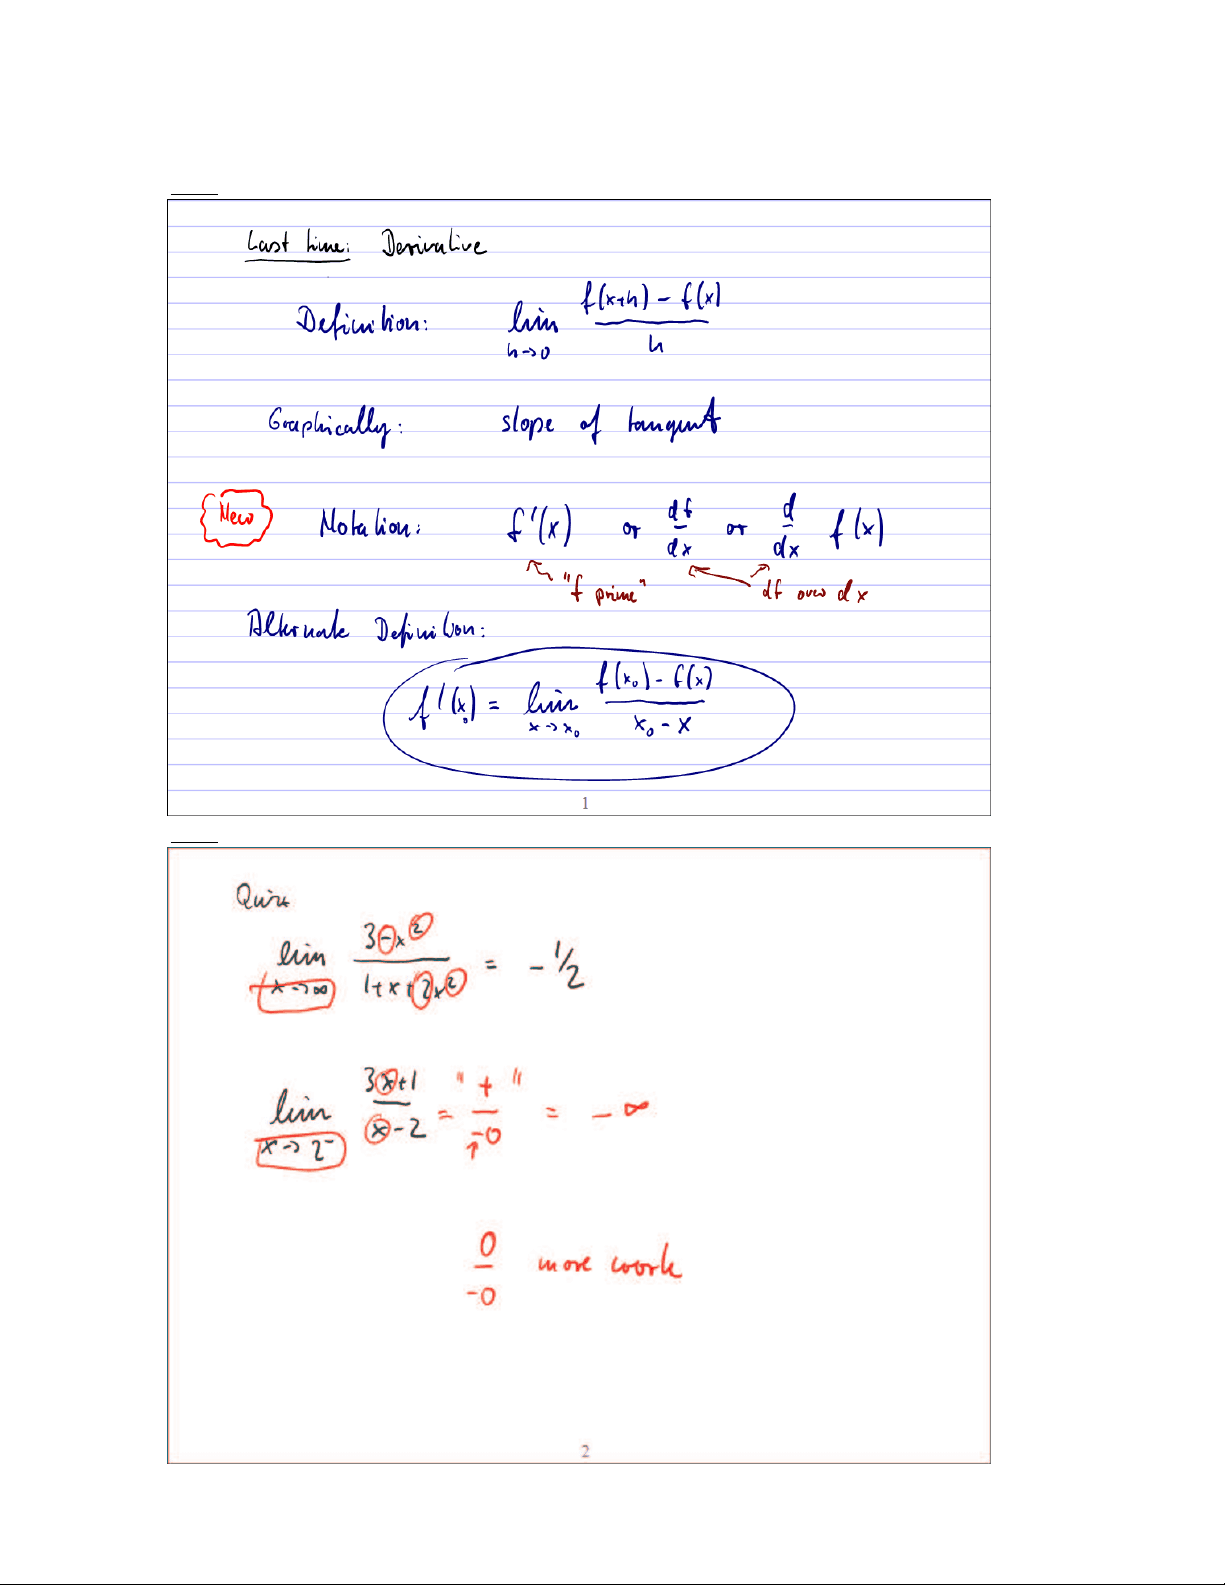 Last time: Derivative
Definition: lim h→0 (f(x+h) - f(x))/h
Graphically: slope of tangent
New Notation: f'(x) or df/dx or d/dx f(x)
"f prime" df over dx
Alternate Definition:
f'(x₀) = lim x→x₀ (f(x₀) - f(x))/(x₀ - x)
1
Quiz
lim x→∞ (3-x²)/(1+x+2x²) = -1/2
lim x→2⁻ (3x+1)/(x-2) = "+"/-0 = -∞
0/-0 more work
2